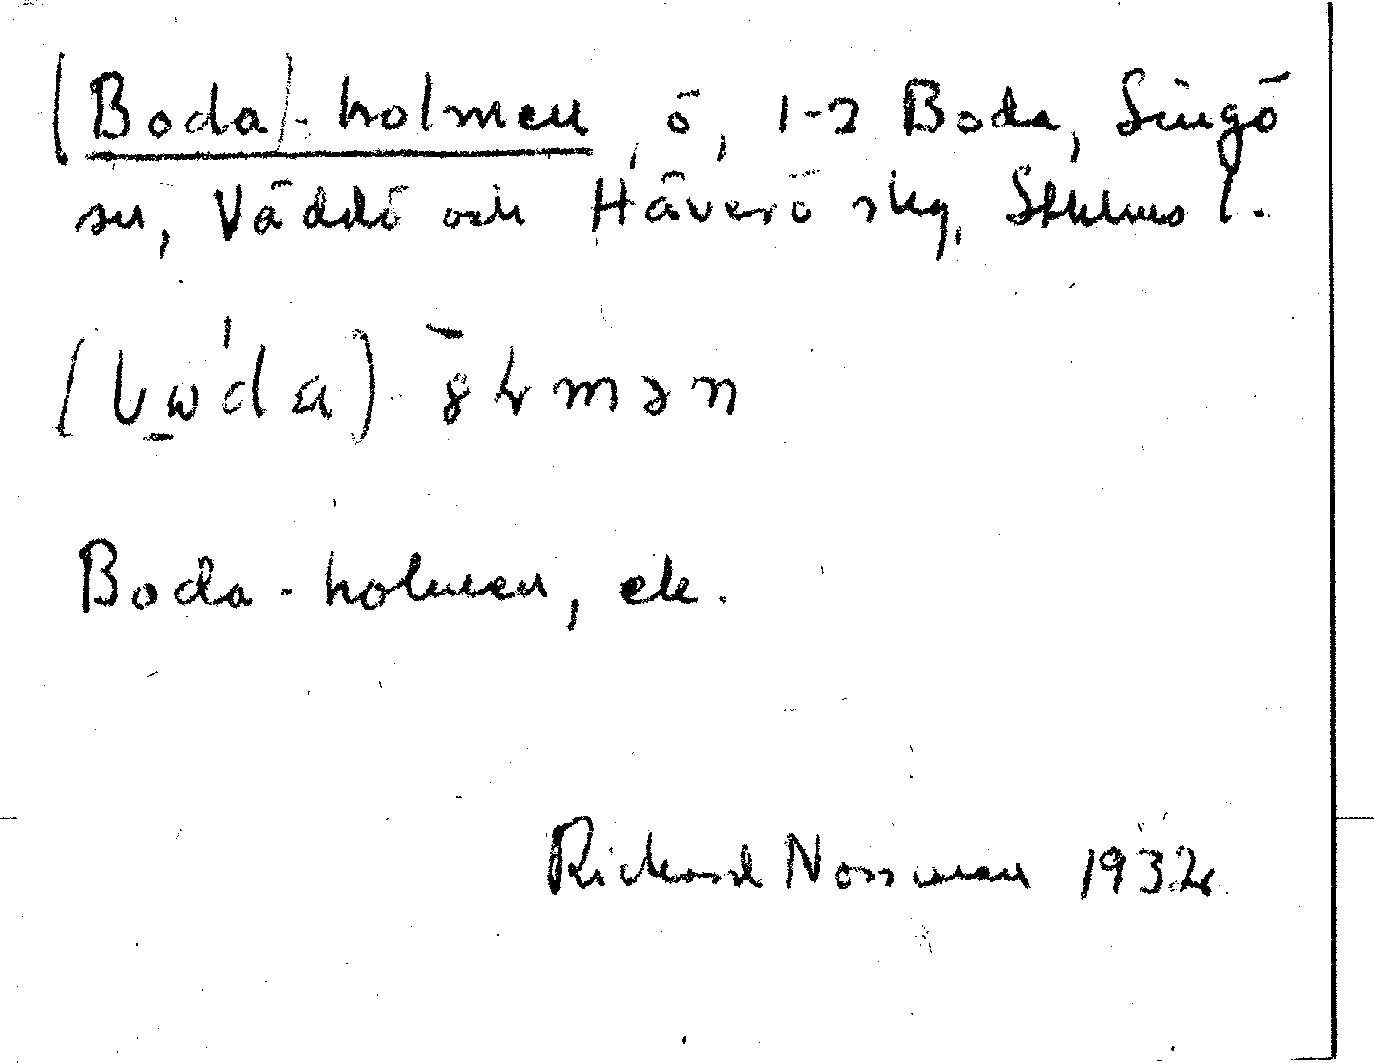 (Boda)-holmen, ö, 1-2 Boda, Singö
sn, Väddö och Häverö skg, Sthlms l.
Boda-holmen, ek.
Rickard Norrman 1932